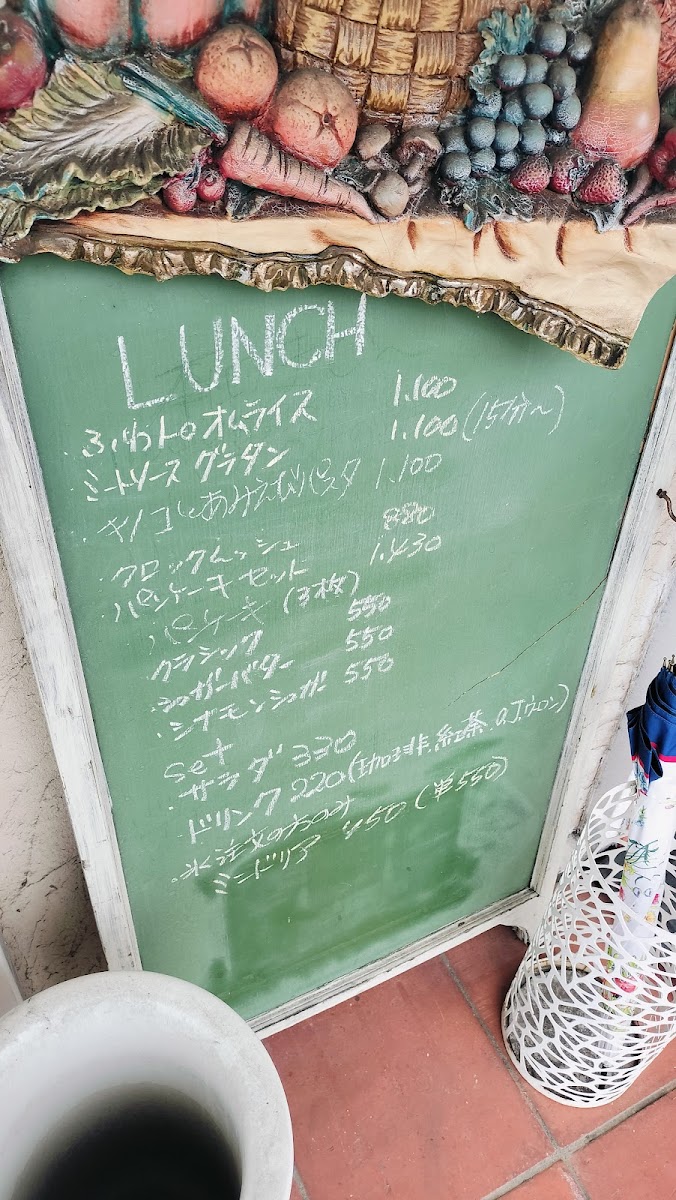 LUNCH
・ふわトロオムライス 1.100
・ミートソースグラタン 1.100(15分〜)
・キノコとあみえびパスタ 1.100
・クロックムッシュ 880
・パンケーキセット 1.430
パンケーキ(3枚)
・クラシック 550
・シュガーバター 550
・シナモンシュガー 550
set
・サラダ 330
・ドリンク 220(珈琲.紅茶.O.J.ウーロン)
・ミニドリア 450(単550)